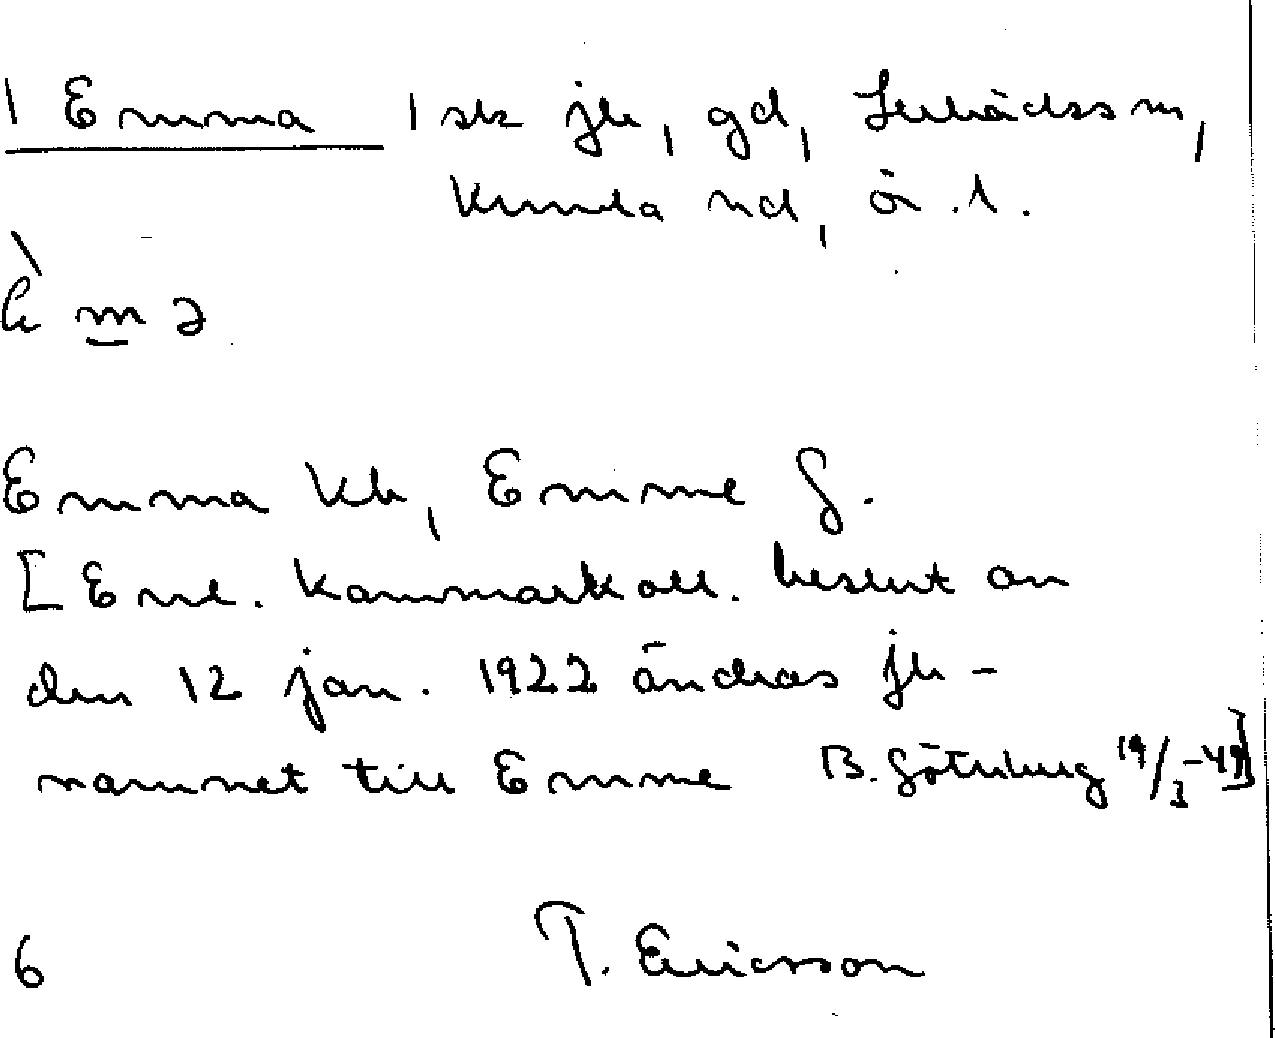 1 Emma 1 stz jb, gd, Lerbäckss sn,
Kumla hd, ör. l.
è m ə
Emma kb, Emme G.
[Enl. Kammarkoll. beslut an
den 12 jan. 1922 ändras jb-
namnet till Emme B. Göteberg 19/3-49]
6 T. Ericsson